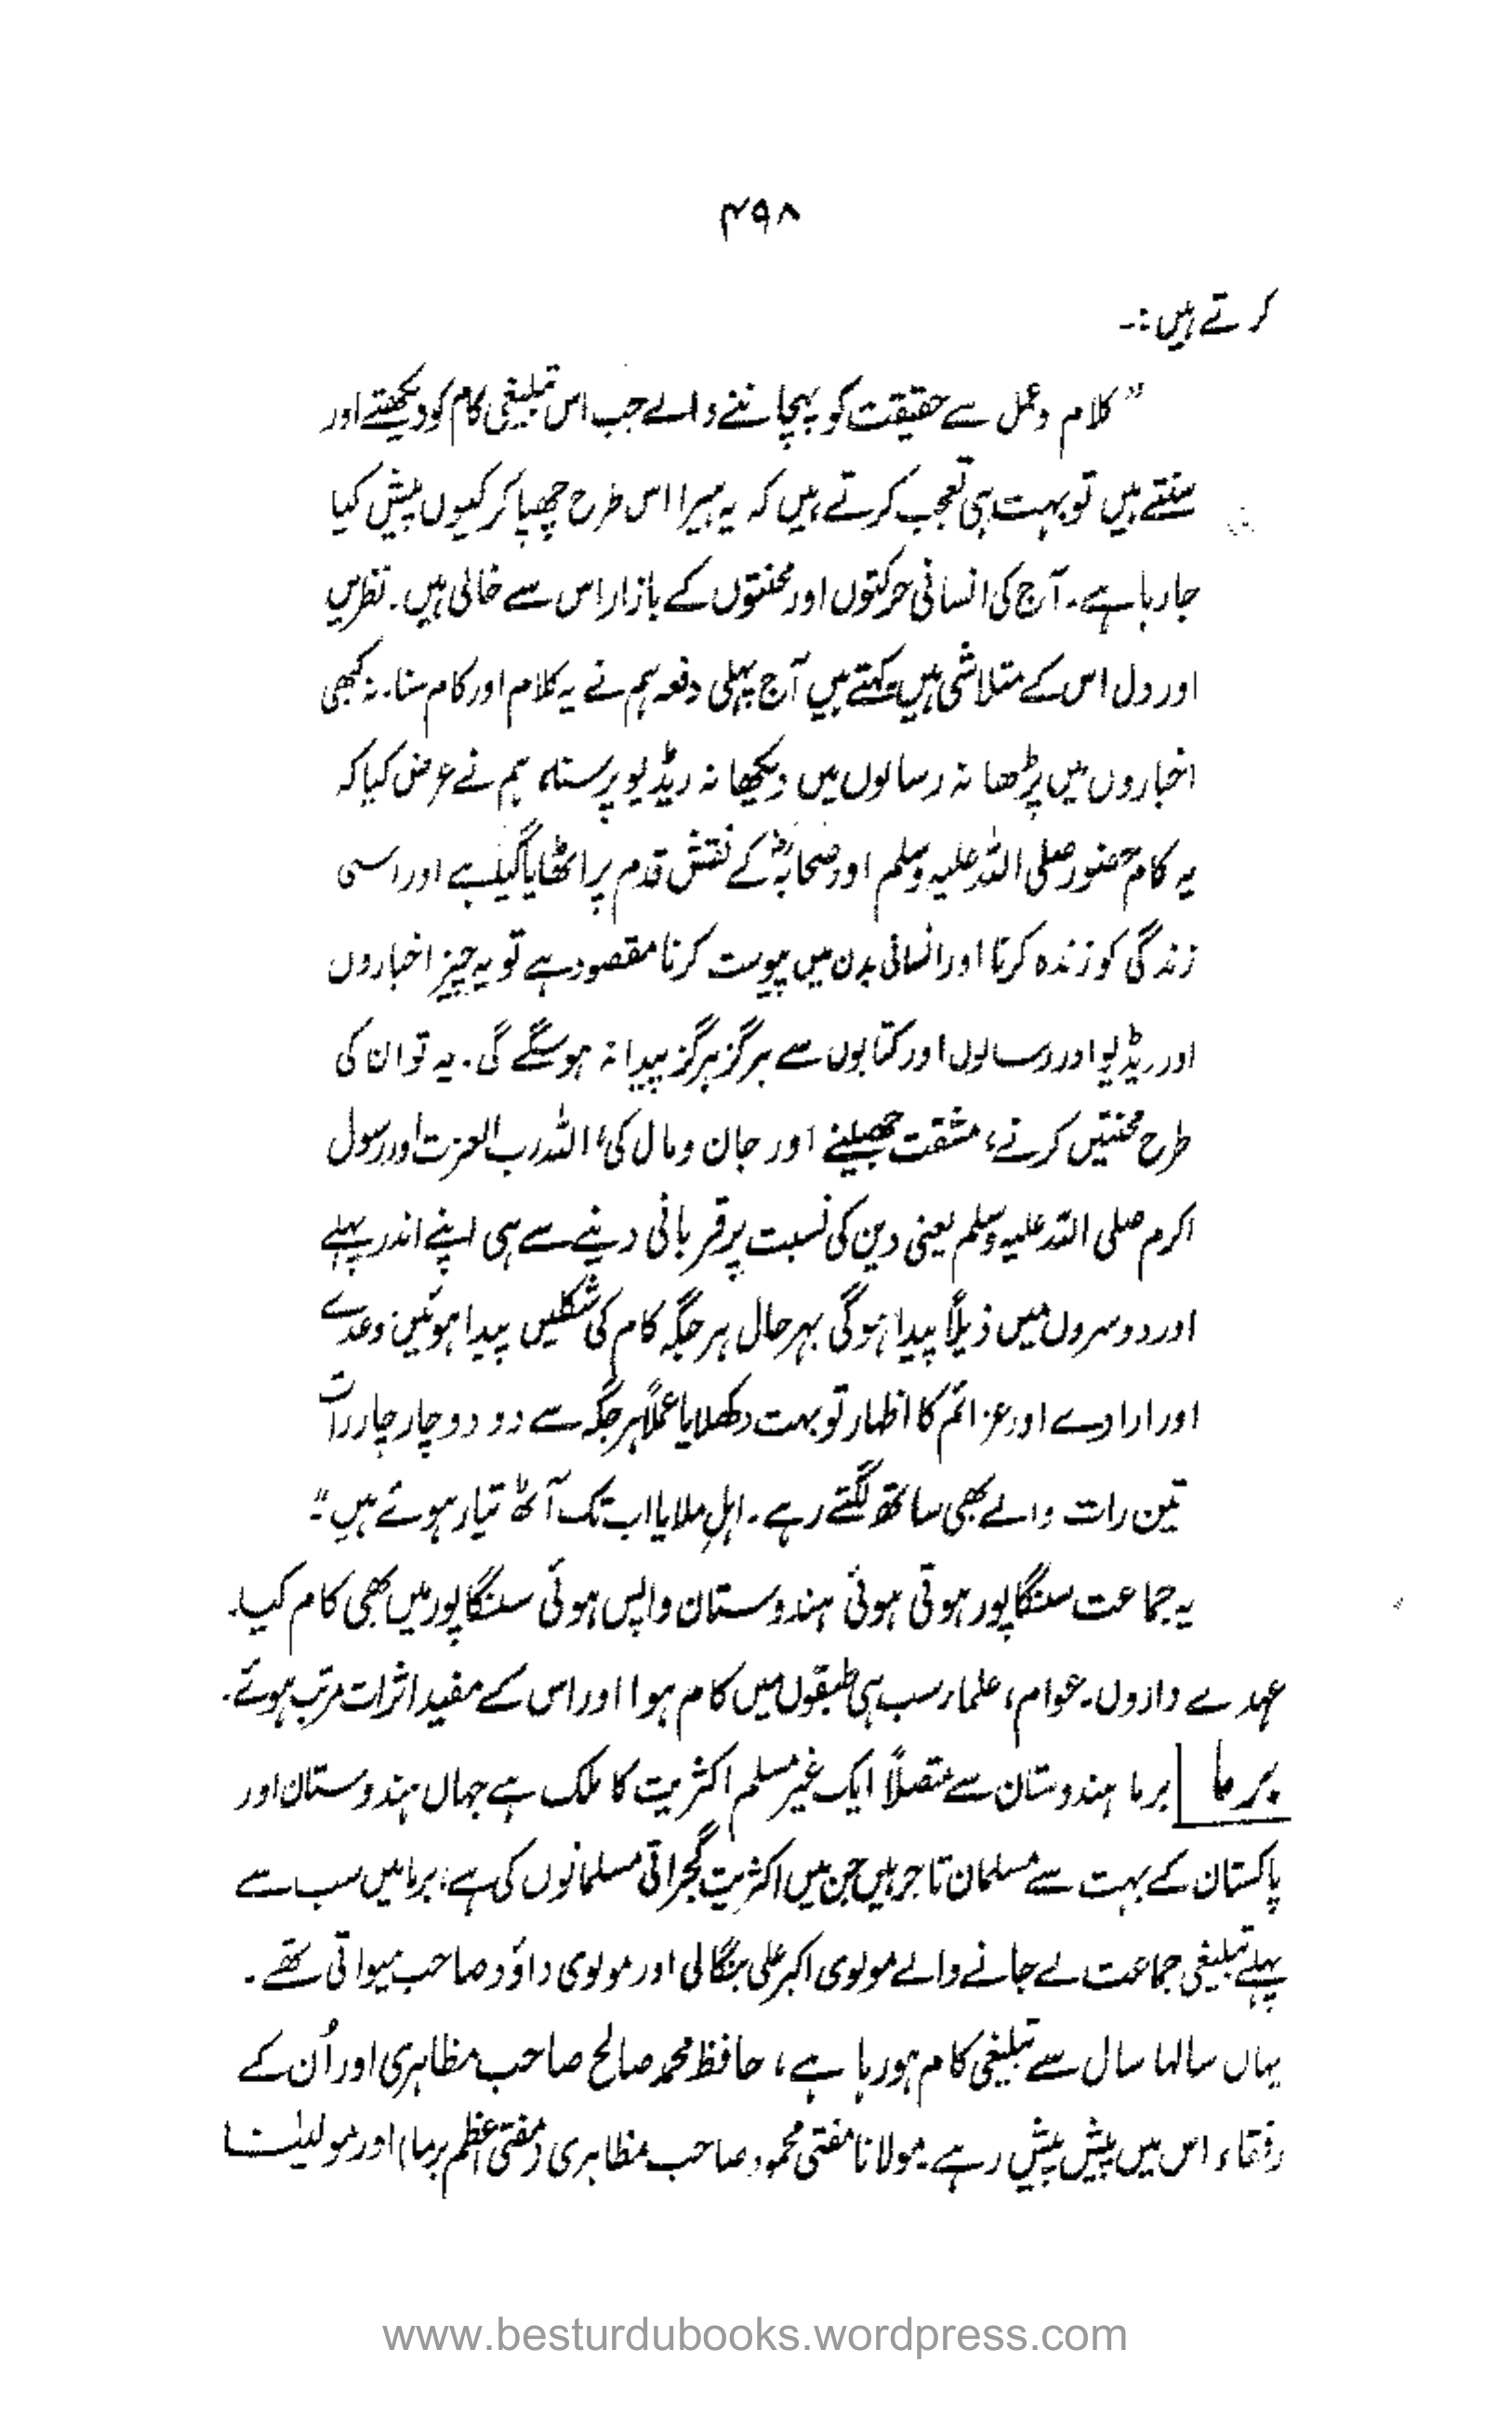 ۴۹۸
کرتے ہیں :۔
”کلام وعمل سے حقیقت کو پہچاننے والے جب اس تبلیغی کام کو دیکھتے اور
سنتے ہیں تو بہت ہی تعجب کرتے ہیں کہ یہ ہیرا اس طرح چھپا کر کیوں پیش کیا
جا رہا ہے۔ آج کی انسانی حرکتوں اور محنتوں کے بازار اس سے خالی ہیں۔ نظریں
اور دل اس کے متلاشی ہیں، کہتے ہیں آج پہلی دفعہ ہم نے یہ کلام اور کام سنا۔ نہ کبھی
اخباروں میں پڑھا نہ رسالوں میں دیکھا نہ ریڈیو پر سنا، ہم نے عرض کیا کہ
یہ کام حضور صلی اللہ علیہ وسلم اور صحابہؓ کے نقش قدم پر اٹھایا گیا ہے اور اسی
زندگی کو زندہ کرنا اور انسانی بدن میں پیوست کرنا مقصود ہے تو یہ چیز اخباروں
اور ریڈیو اور رسالوں اور کتابوں سے ہرگز ہرگز پیدا نہ ہوسکے گی۔ یہ تو ان کی
طرح محنتیں کرنے، مشقت جھیلنے اور جان و مال کی، اللہ رب العزت اور رسول
اکرم صلی اللہ علیہ وسلم یعنی دین کی نسبت پر قربانی دینے سے ہی اپنے اندر پہلے
اور دوسروں میں ذیلاً پیدا ہوگی بہرحال ہر جگہ کام کی شکلیں پیدا ہوئیں، وعدے
اور ارادے اور عزائم کا اظہار تو بہت دکھلایا عملاً ہر جگہ سے دو دو چار چار رات
تین رات والے بھی ساتھ لگتے رہے۔ اہلِ ملایا اب تک آٹھ تیار ہوئے ہیں“۔
یہ جماعت سنگاپور ہوتی ہوئی ہندوستان واپس ہوئی سنگاپور میں بھی کام کیا۔
عہدے داروں۔ عوام، علماء سب ہی طبقوں میں کام ہوا اور اس کے مفید اثرات مرتب ہوئے۔
برما | برما ہندوستان سے متصلاً ایک غیر مسلم اکثریت کا ملک ہے جہاں ہندوستان اور
پاکستان کے بہت سے مسلمان تاجر ہیں جن میں اکثریت گجراتی مسلمانوں کی ہے، برما میں سب سے
پہلے تبلیغی جماعت لے جانے والے مولوی اکبر علی بنگالی اور مولوی داؤد صاحب میواتی تھے۔
یہاں سالہا سال سے تبلیغی کام ہو رہا ہے، حافظ محمد صالح صاحب مظاہری اور اُن کے
رفقاء اس میں پیش پیش رہے۔ مولانا مفتی محمود صاحب مظاہری (مفتی اعظم برما) اور مولینٰا
www.besturdubooks.wordpress.com